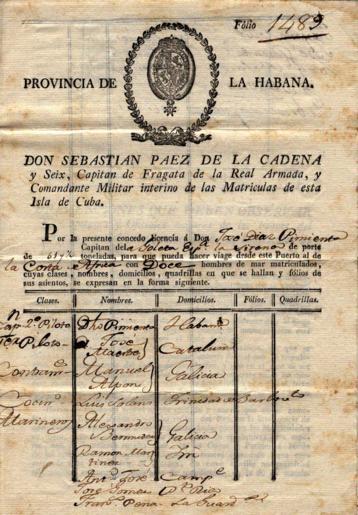 Fólio 1489
PROVINCIA DE LA HABANA.
DON SEBASTIAN PAEZ DE LA CADENA
y Seix, Capitan de Fragata de la Real Armada, y
Comandante Militar interino de las Matriculas de esta
Isla de Cuba.
Por la presente concedo licencia á Don José Diaz Pimienta
Capitan de la Goleta Espª la
de porte
de toneladas, para que pueda hacer viage desde este Puerto al de
la Costa Africa con Doce hombres de mar matriculados,
cuyas clases, nombres, domicilios, quadrillas en que se hallan y fólios de
sus asientos, se expresan en la forma siguiente.
Clases. Nombres. Domicilios. Fólios. Quadrillas.
Dho Pimienta Habana
José
Cataluña
Manuel Galicia
Luis
Marineros Alessandro
Bermudez Galicia
Ramon
Antº José Campe
José Gomez
Franº Pena La Guard